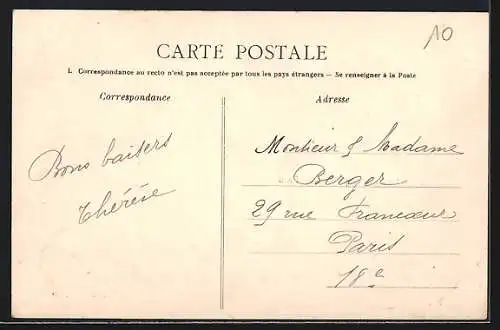 A0
CARTE POSTALE
1. Correspondance au recto n'est pas acceptée par tous les pays étrangers — Se renseigner à la Poste
Correspondance
Adresse
Bons baisers
Thérèse
Monsieur & Madame
Berger
29 rue Francœur
Paris
18e